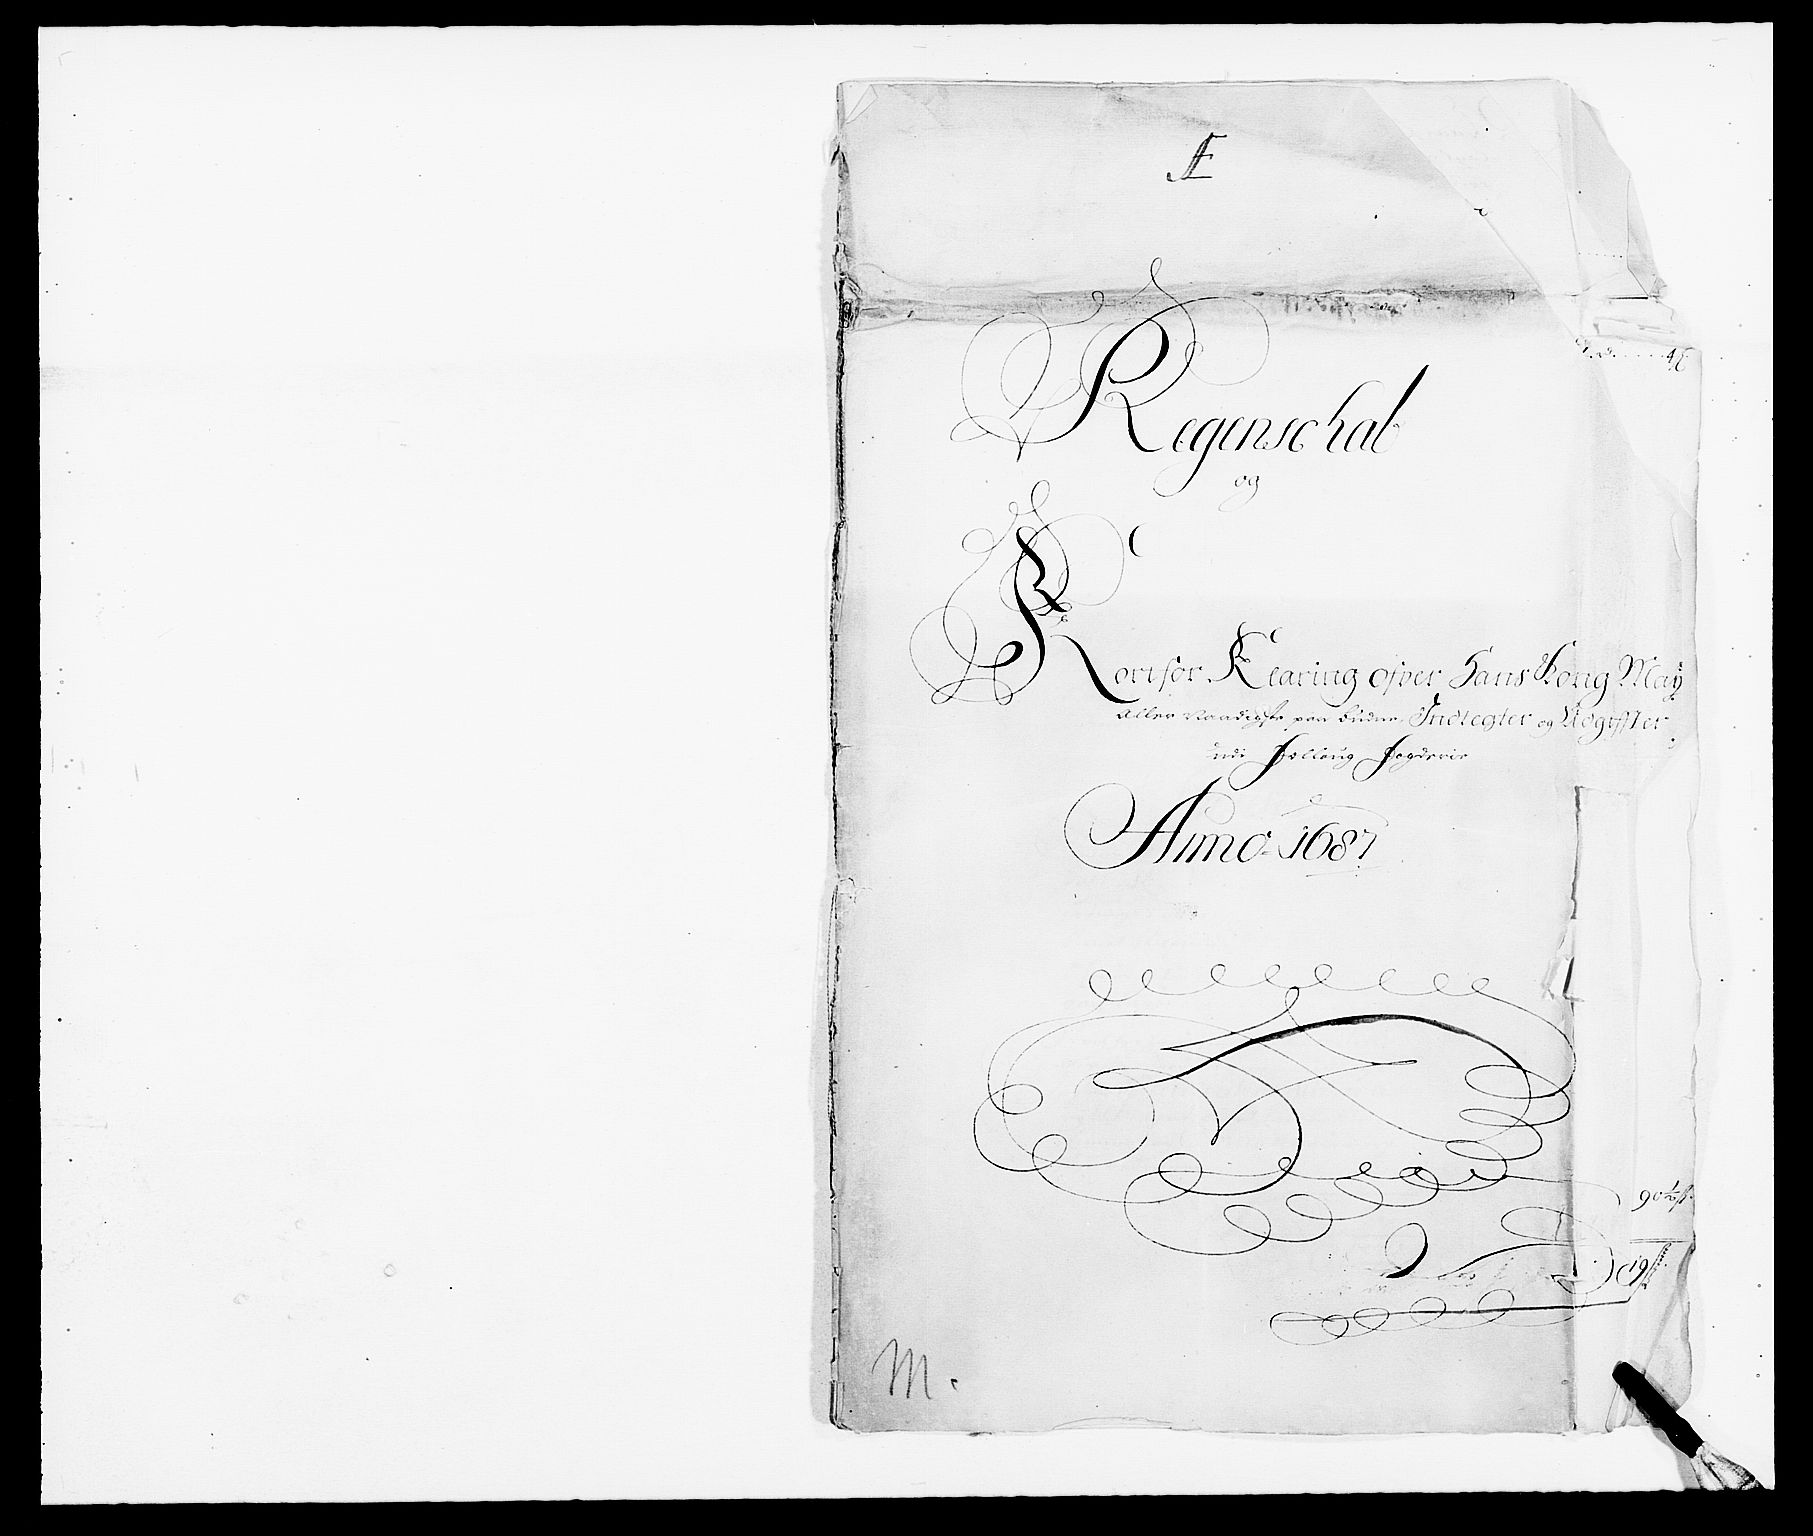 Æ
Regenschab
og
Kort for Klaring ofver Hans Kong May
Aller Naadigste paa budne Indtegter og Udgiffter
udi Folloug Fogderie
Anno 1687
90½
19
M.